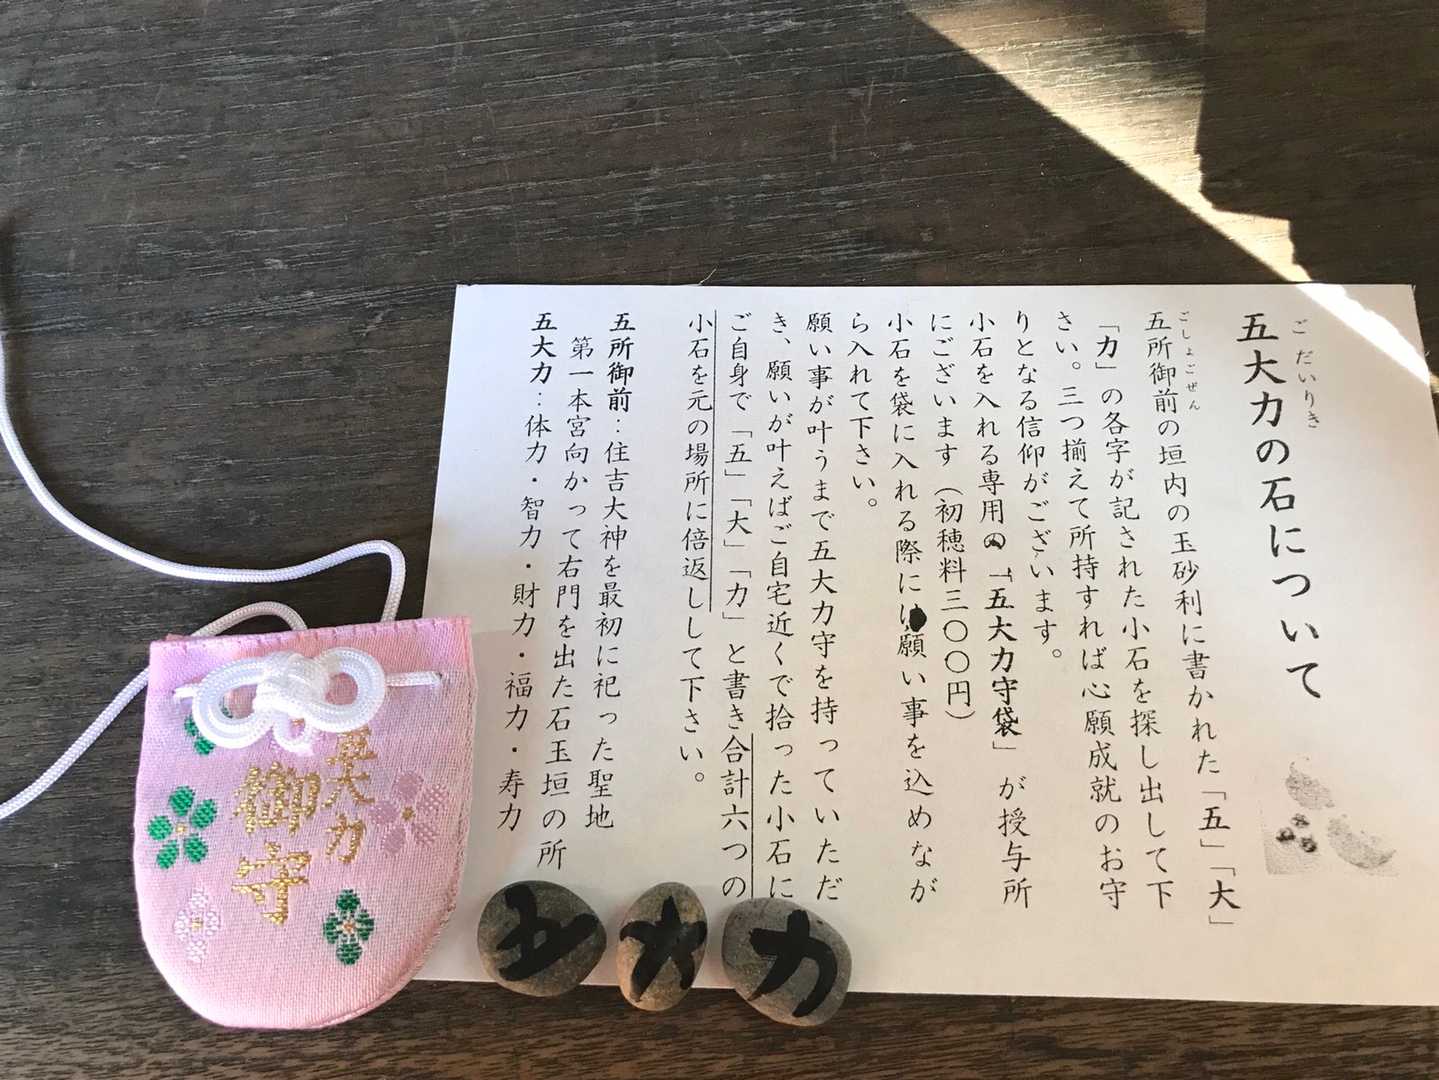 五大力の石について
ごだいりき
五所御前の垣内の玉砂利に書かれた「五」「大」
ごしょごぜん
「力」の各字が記された小石を探し出して下
さい。三つ揃えて所持すれば心願成就のお守
りとなる信仰がございます。
小石を入れる専用の「五大力守袋」が授与所
にございます（初穂料三〇〇円）
小石を袋に入れる際に願い事を込めなが
ら入れて下さい。
願い事が叶うまで五大力守を持っていただ
き、願いが叶えばご自宅近くで拾った小石に
ご自身で「五」「大」「力」と書き合計六つの
小石を元の場所に倍返しして下さい。
五所御前：住吉大神を最初に祀った聖地
第一本宮向かって右門を出た石玉垣の所
五大力：体力・智力・財力・福力・寿力
五大力
御守
五
大
力